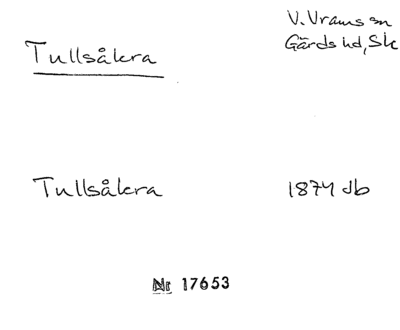 Tullsåkra
V. Vrams sn
Gärds hd, Sk
Tullsåkra
1874 db
Nr 17653